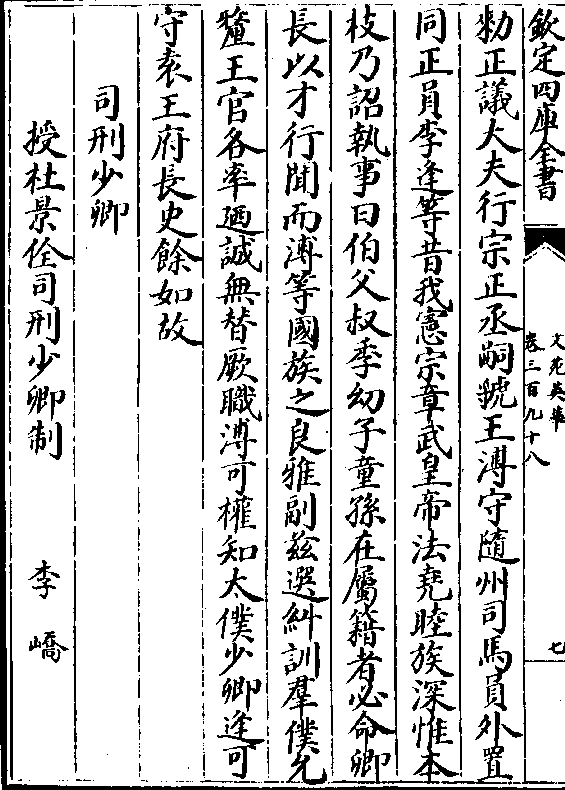 欽定四庫全書
文苑英華
卷三百九十八
七
勑正議大夫行宗正丞嗣虢王溥守隨州司馬員外置
同正員李逢等昔我憲宗章武皇帝法堯睦族深惟本
枝乃詔執事曰伯父叔季幼子童孫在屬籍者必命卿
長以才行聞而溥等國族之良雅副兹選糾訓羣僕允
釐王官各率廼誠無替厥職溥可權知太僕少卿逢可
守袁王府長史餘如故
司刑少卿
授杜景佺司刑少卿制 李嶠